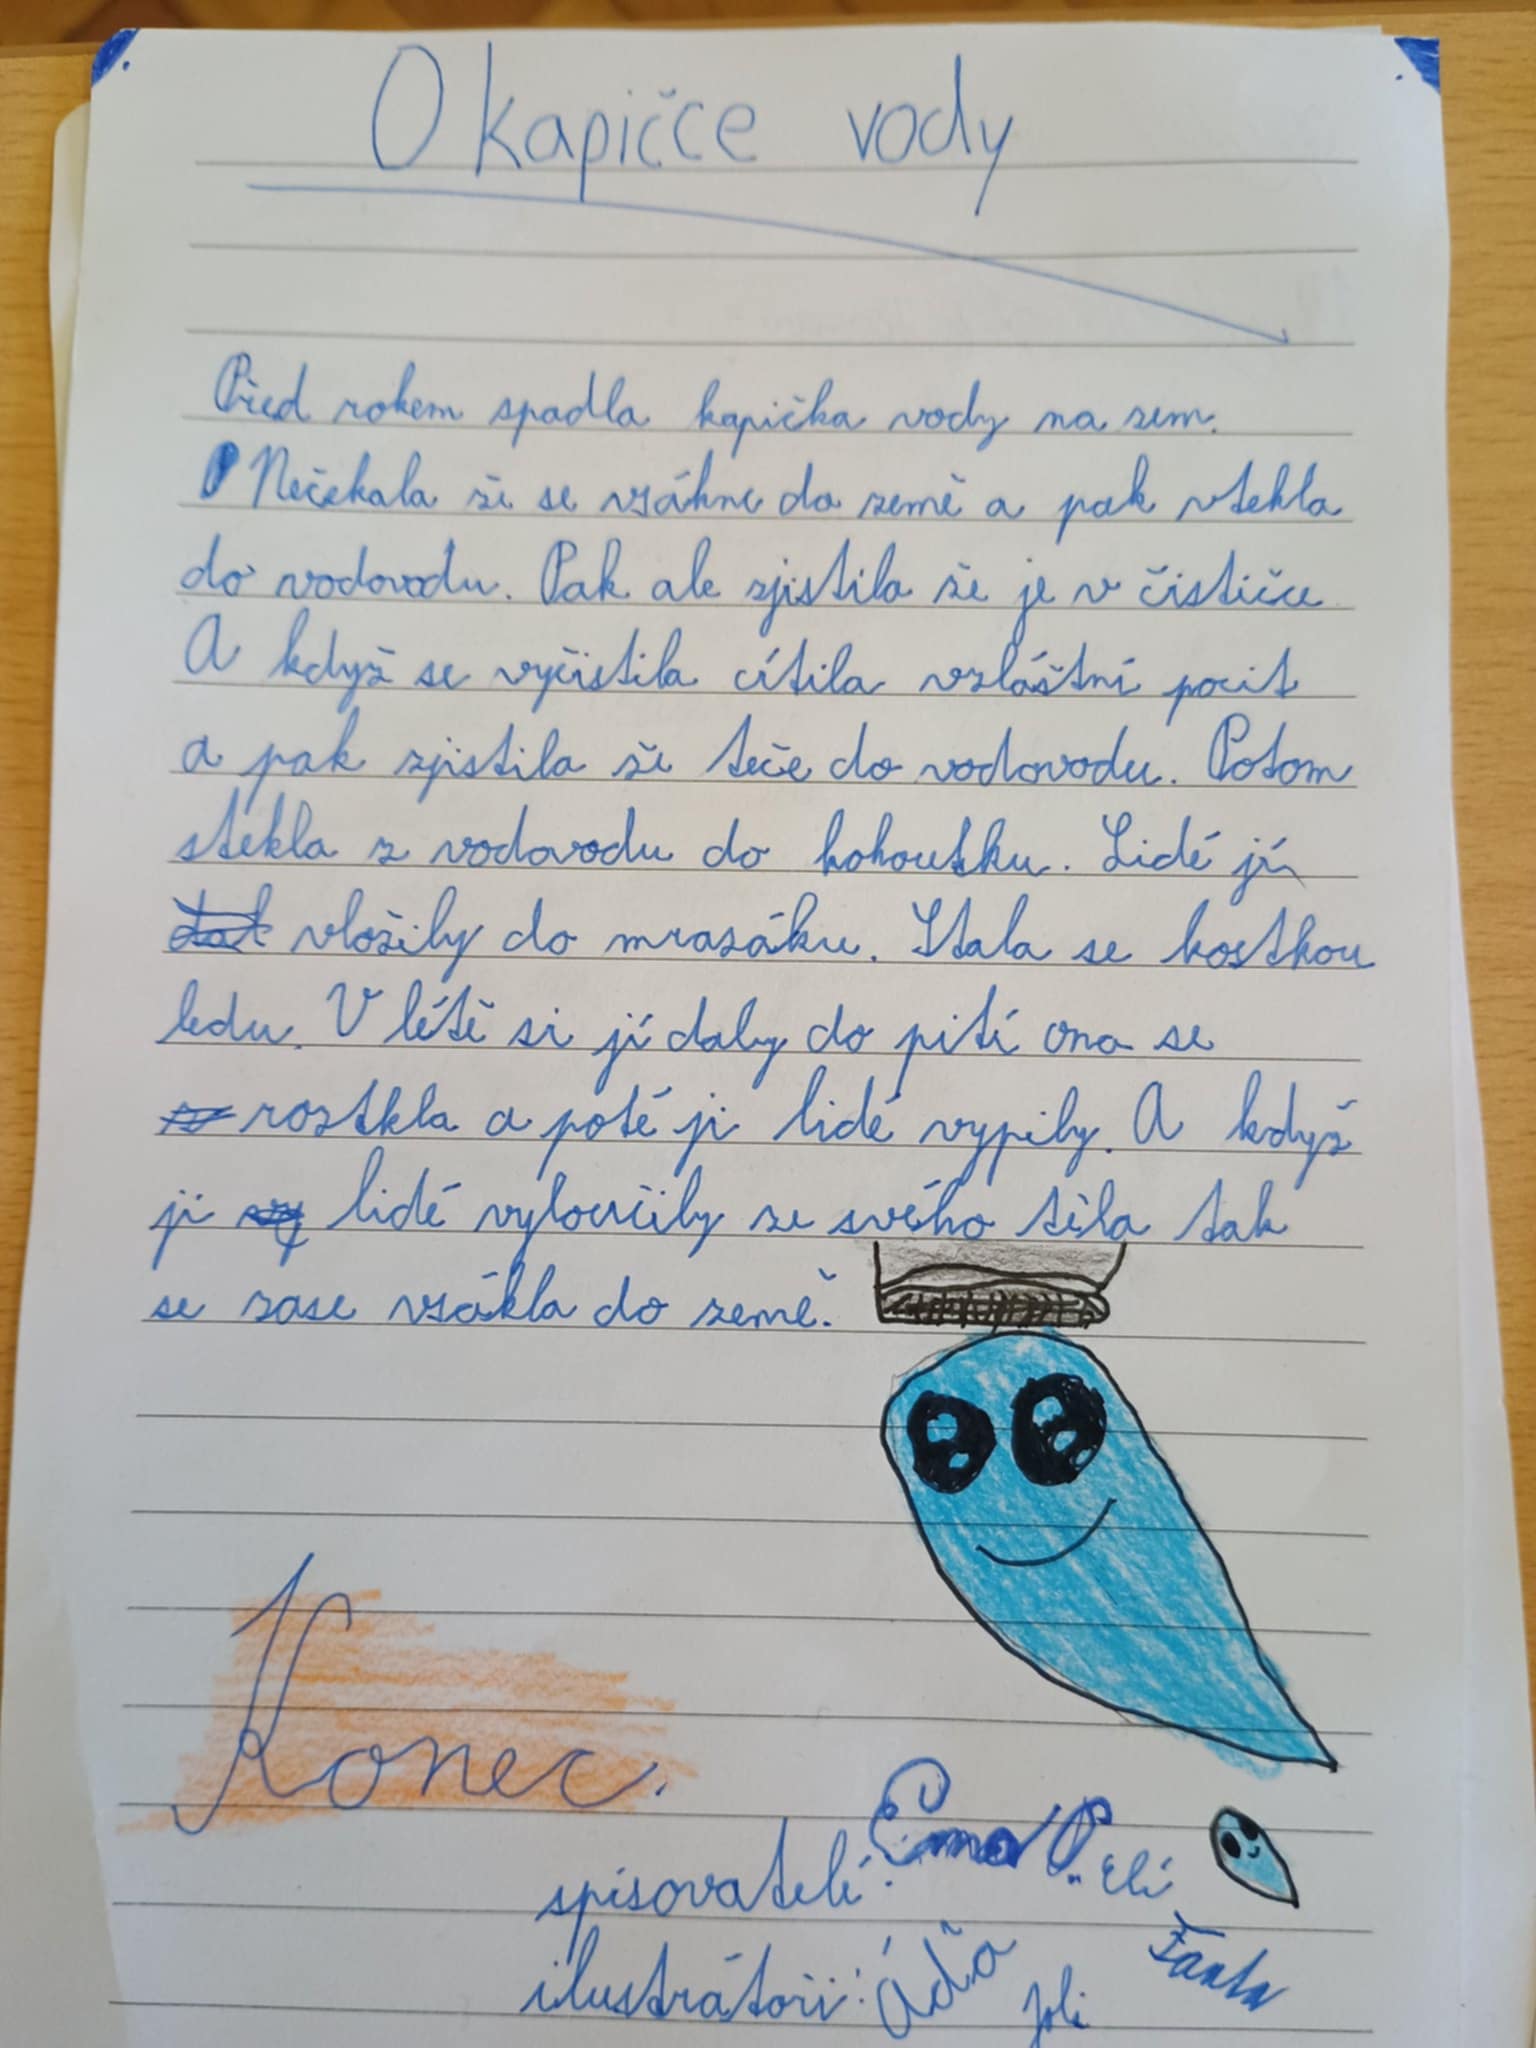 O kapičce vody
Před rokem spadla kapička vody na zem.
Nečekala že se vsákne do země a pak vtekla
do vodovodu. Pak ale zjistila že je v čističce
A když se vyčistila cítila vzláštní pocit
a pak zjistila že teče do vodovodu. Potom
stekla z vodovodu do kohoutku. Lidé jí
vložily do mrazáku. Stala se kostkou
ledu. V létě si jí daly do pití ona se
roztkla a poté ji lidé vypily. A když
ji lidé vyloučily ze svého těla tak
se zase vsákla do země.
Konec.
spisovatelé: Ema P. Eli
ilustrátoři: Áďa Joli